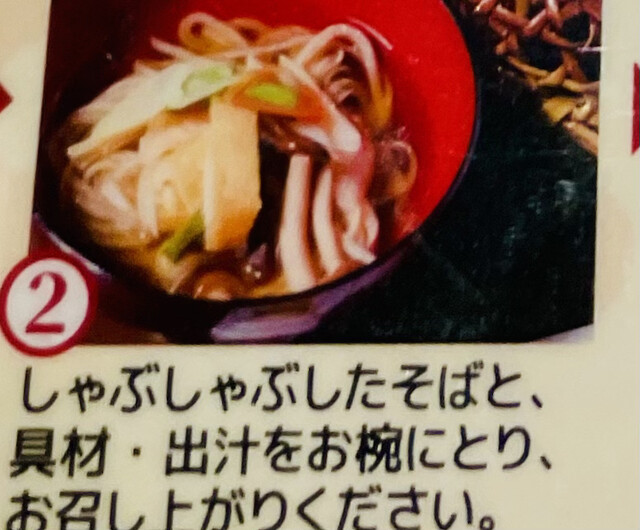 2
しゃぶしゃぶしたそばと、
具材・出汁をお椀にとり、
お召し上がりください。